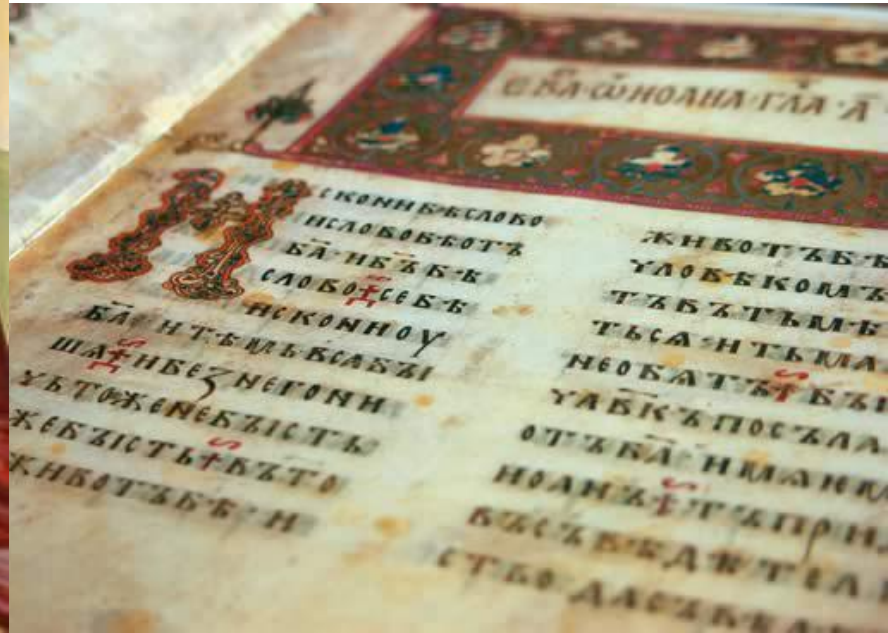 ЕВА ѾИОАНА ГЛА А
ИСКОНИБѢСЛОВО
ИСЛОВОБѢОТЪ
БА҃ ИБЪ҃БѢ
СЛОВО СЕБѢ
ИСКОНИОУ
БА҃ ИТѢМЬВСѦБЪІ
ШѦ ИБЕЗНЕГОНИ
ЧЬТОЖЕНЕБЪІСТЬ
ЖЕБЪІСТЬ ВЪТО
ЖИВОТЪБѢ И
ЖИВОТЪБѢ
ЧЛОВѢКОМЪ
ТЪВЪТЬМѢ
ТЬСѦ ИТЬМА
НЕОБѦТЪ БЪІ
ЧЛВ҃КЪПОСЪЛА
ОТЪБА҃ ИМѦ
ИОАНЪ ТЪПРИ
ВЪСЪВѢДѢТЕЛ
СТВО ДАСЪВѢ